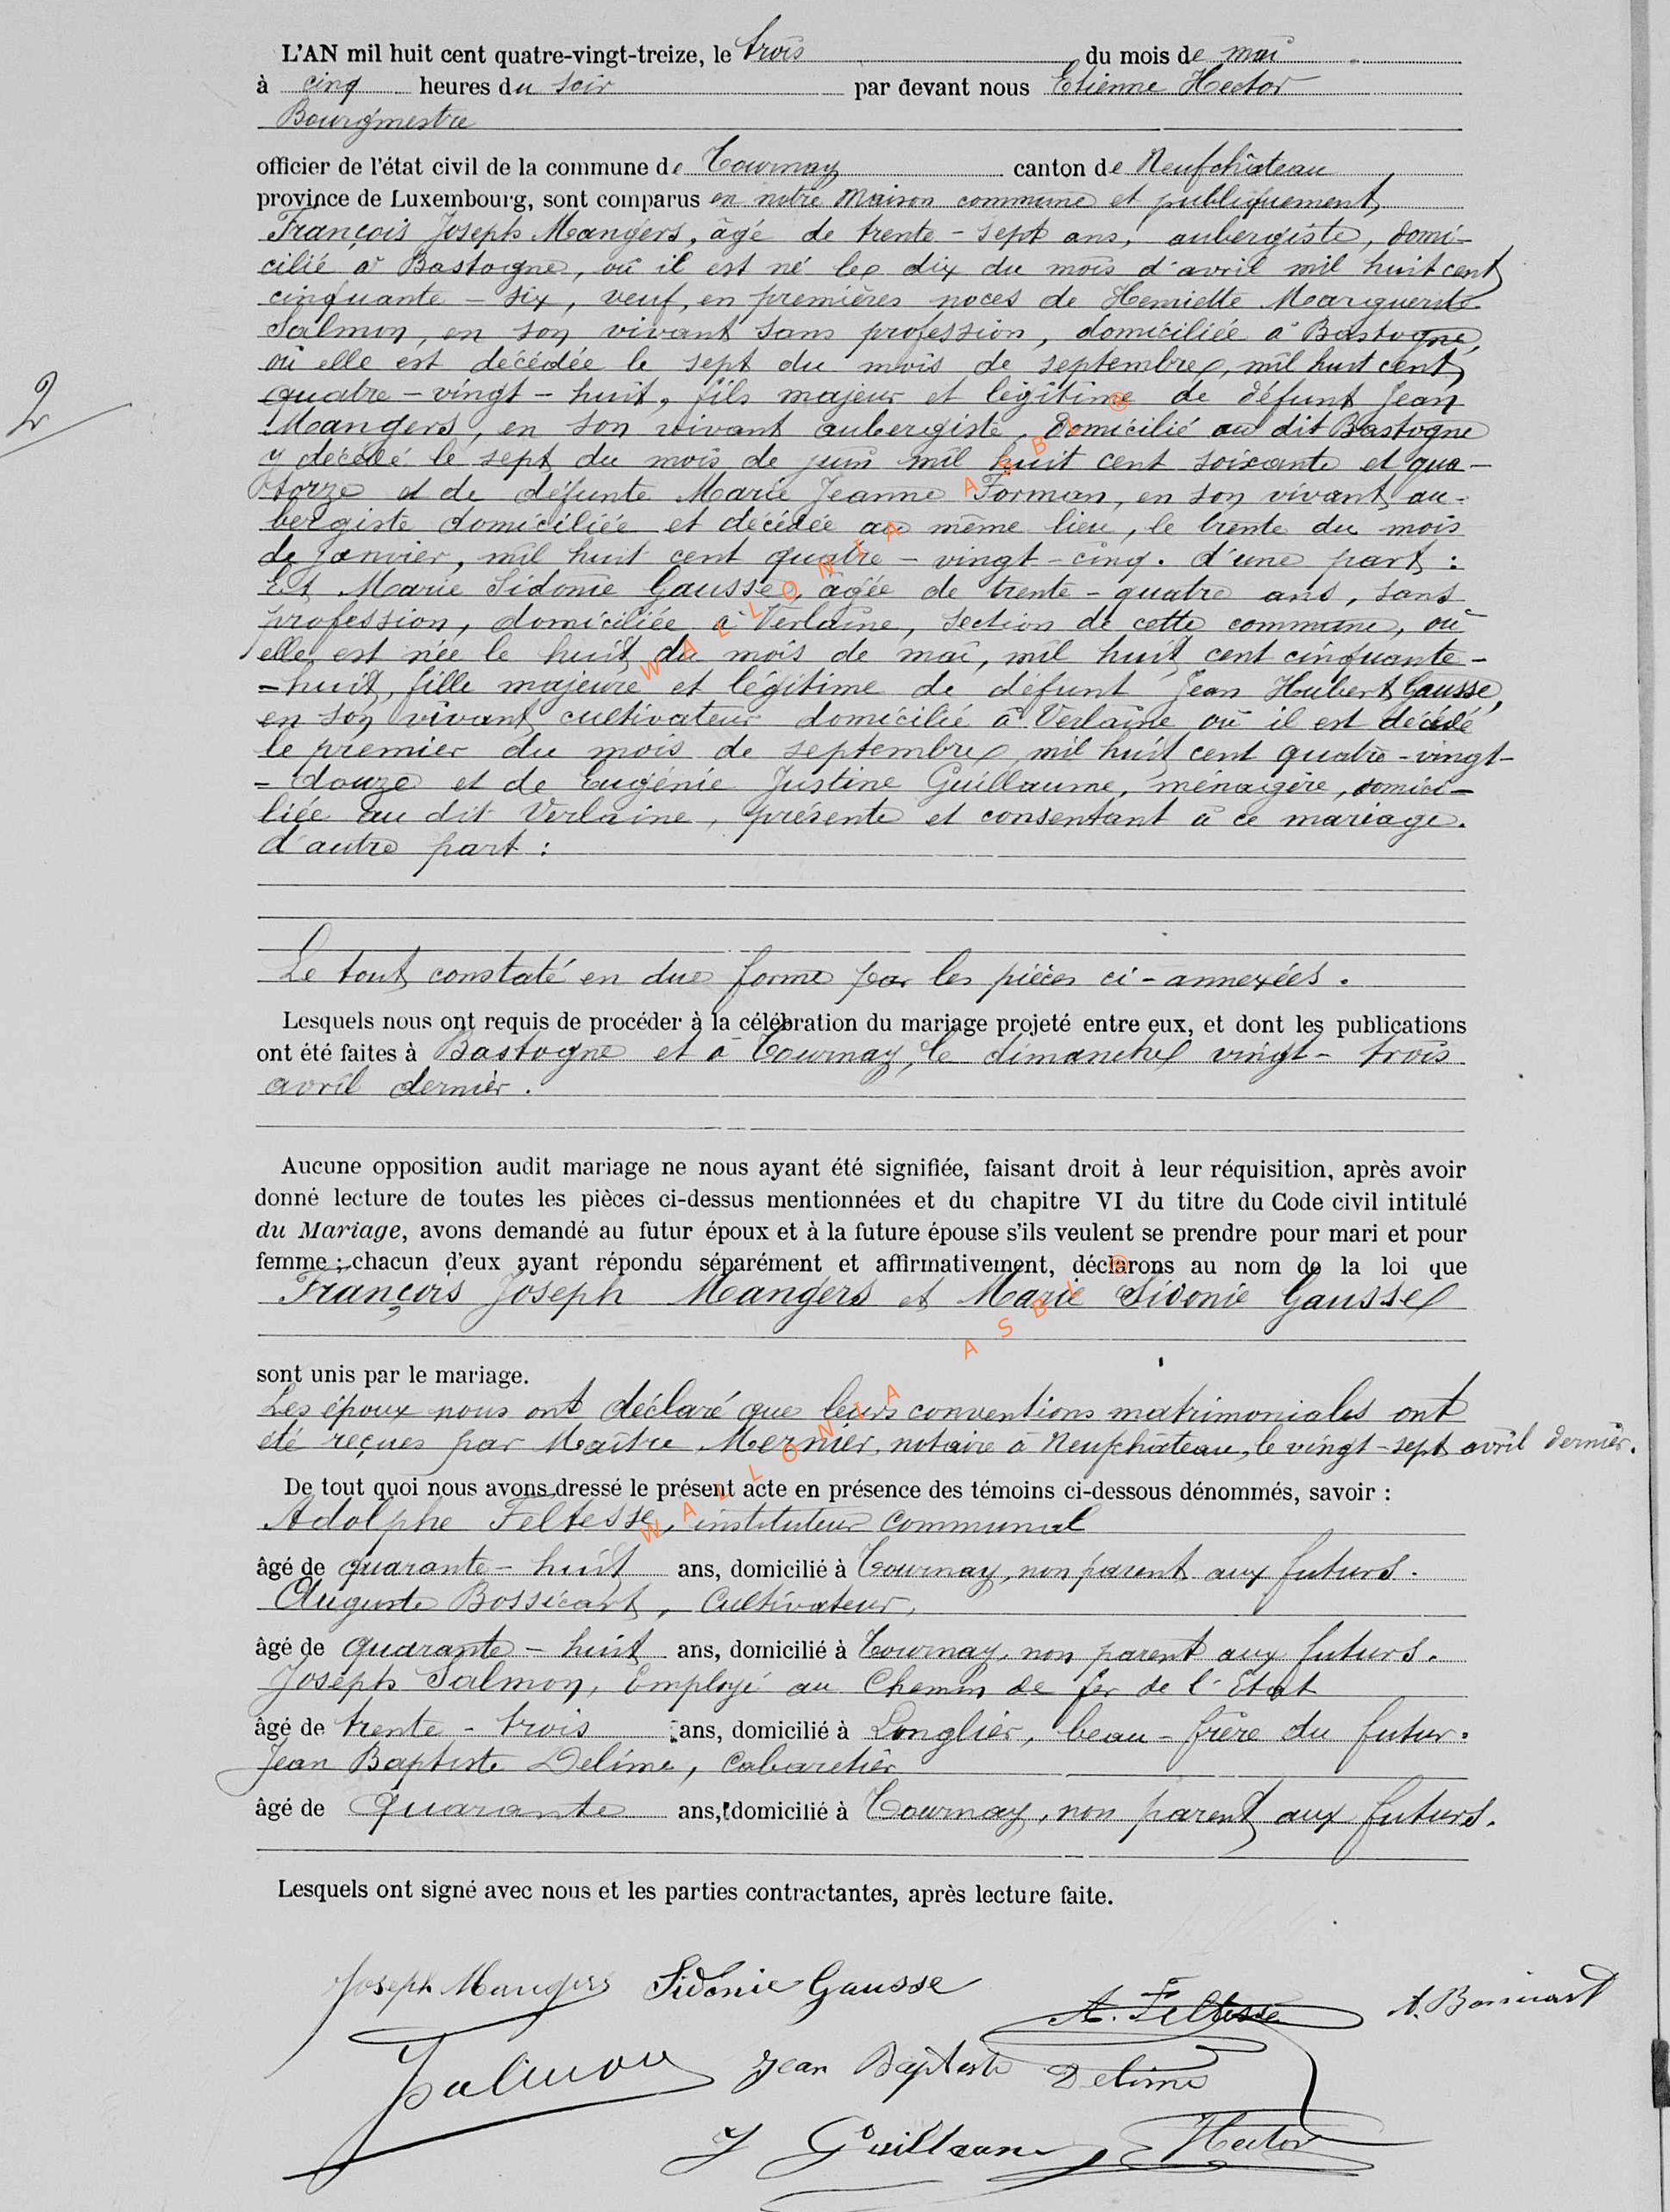 L'AN mil huit cent quatre-vingt-treize, le trois du mois de mai
à cinq heures du soir par devant nous Etienne Hector
Bourgmestre
officier de l'état civil de la commune de Tournay canton de Neufchâteau
province de Luxembourg, sont comparus en notre Maison commune et publiquement,
François Joseph Mangers, âgé de trente - sept ans, aubergiste, domi-
cilié à Bastogne, où il est né le dix du mois d'avril mil huit cent
cinquante - six, veuf, en premières noces de Henriette Marguerite
Salmon, en son vivant sans profession, domiciliée à Bastogne,
où elle est décédée le sept du mois de septembre, mil huit cent
quatre - vingt - huit, fils majeur et légitime de défunt Jean
Mangers, en son vivant aubergiste, domicilié au dit Bastogne
y décédé le sept du mois de juin mil huit cent soixante et qua-
torze et de défunte Marie Jeanne Forman, en son vivant au-
bergiste domiciliée et décédée au même lieu, le trente du mois
de Janvier, mil huit cent quatre - vingt - cinq. d'une part :
Et Marie Sidonie Gausse, âgée de trente - quatre ans, sans
profession, domiciliée à Verlaine, section de cette commune, où
elle est née le huit du mois de mai, mil huit cent cinquante -
- huit, fille majeure et légitime de défunt Jean Hubert Gausse,
en son vivant cultivateur domicilié à Verlaine où il est décédé
le premier du mois de septembre mil huit cent quatre - vingt -
- douze et de Eugénie Justine Guillaume, ménagère, domici-
liée au dit Verlaine, présente et consentant à ce mariage.
d'autre part :
Le tout constaté en due forme par les pièces ci - annexées.
Lesquels nous ont requis de procéder à la célébration du mariage projeté entre eux, et dont les publications
ont été faites à Bastogne et à Tournay, le dimanche vingt - trois
avril dernier.
Aucune opposition audit mariage ne nous ayant été signifiée, faisant droit à leur réquisition, après avoir
donné lecture de toutes les pièces ci-dessus mentionnées et du chapitre VI du titre du Code civil intitulé
du Mariage, avons demandé au futur époux et à la future épouse s'ils veulent se prendre pour mari et pour
femme ; chacun d'eux ayant répondu séparément et affirmativement, déclarons au nom de la loi que
François Joseph Mangers et Marie Sidonie Gausse
sont unis par le mariage.
Les époux nous ont déclaré que leurs conventions matrimoniales ont
été reçues par Maître Mernier, notaire à Neufchâteau, le vingt - sept avril dernier.
De tout quoi nous avons dressé le présent acte en présence des témoins ci-dessous dénommés, savoir :
Adolphe Feltesse, instituteur communal
âgé de quarante - huit ans, domicilié à Tournay, non parent aux futurs.
Auguste Bossicart, Cultivateur,
âgé de quarante - huit ans, domicilié à Tournay, non parent aux futurs.
Joseph Salmon, Employé au Chemin de fer de l'Etat
âgé de trente - trois ans, domicilié à Longlier, beau - frère du futur.
Jean Baptiste Delime, Cabaretier
âgé de Quarante ans, domicilié à Tournay, non parent aux futurs.
Lesquels ont signé avec nous et les parties contractantes, après lecture faite.
Joseph Mangers Sidonie Gausse A. Feltesse A. Bossicart
JSalmon Jean Baptiste Delime
J Guillaume Hector
2
WALLONIA ASBL ®
WALLONIA ASBL ®